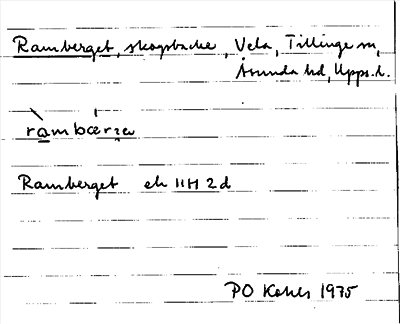 Ramberget, skogsbacke, Vela, Tillinge sn,
Åsunda hd, Upps. l.
rambærjε
Ramberget ek 11H 2d
PO Kohls 1975